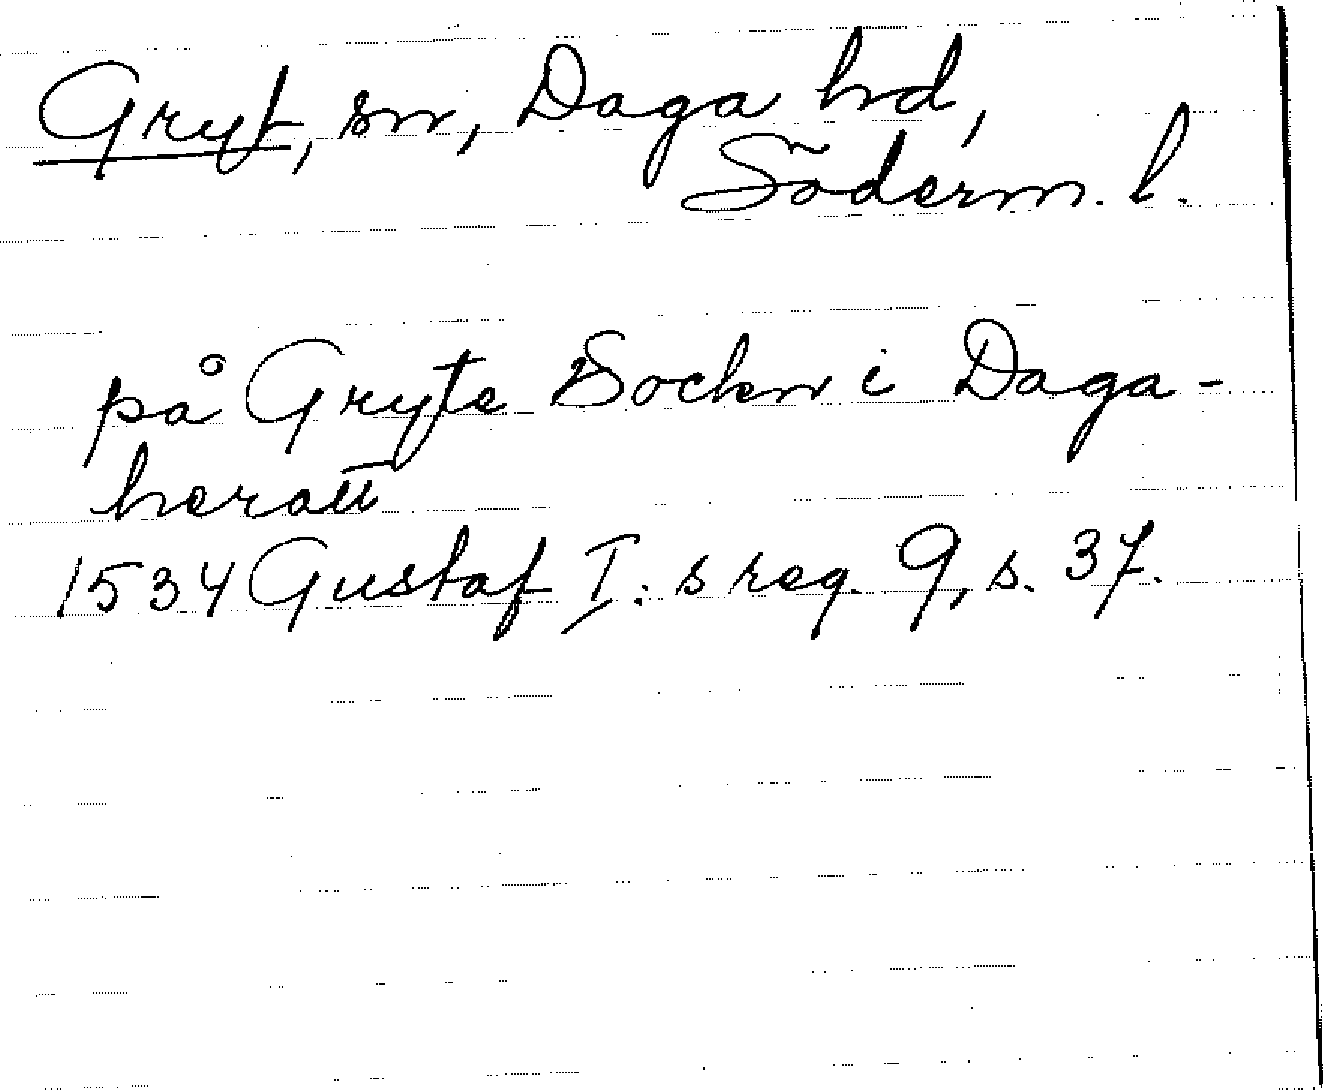 Gryt, sn, Daga hd,
Söderm. l.
på Gryte Sockn i Daga-
heratt
1534 Gustaf I:s reg. 9, s. 37.